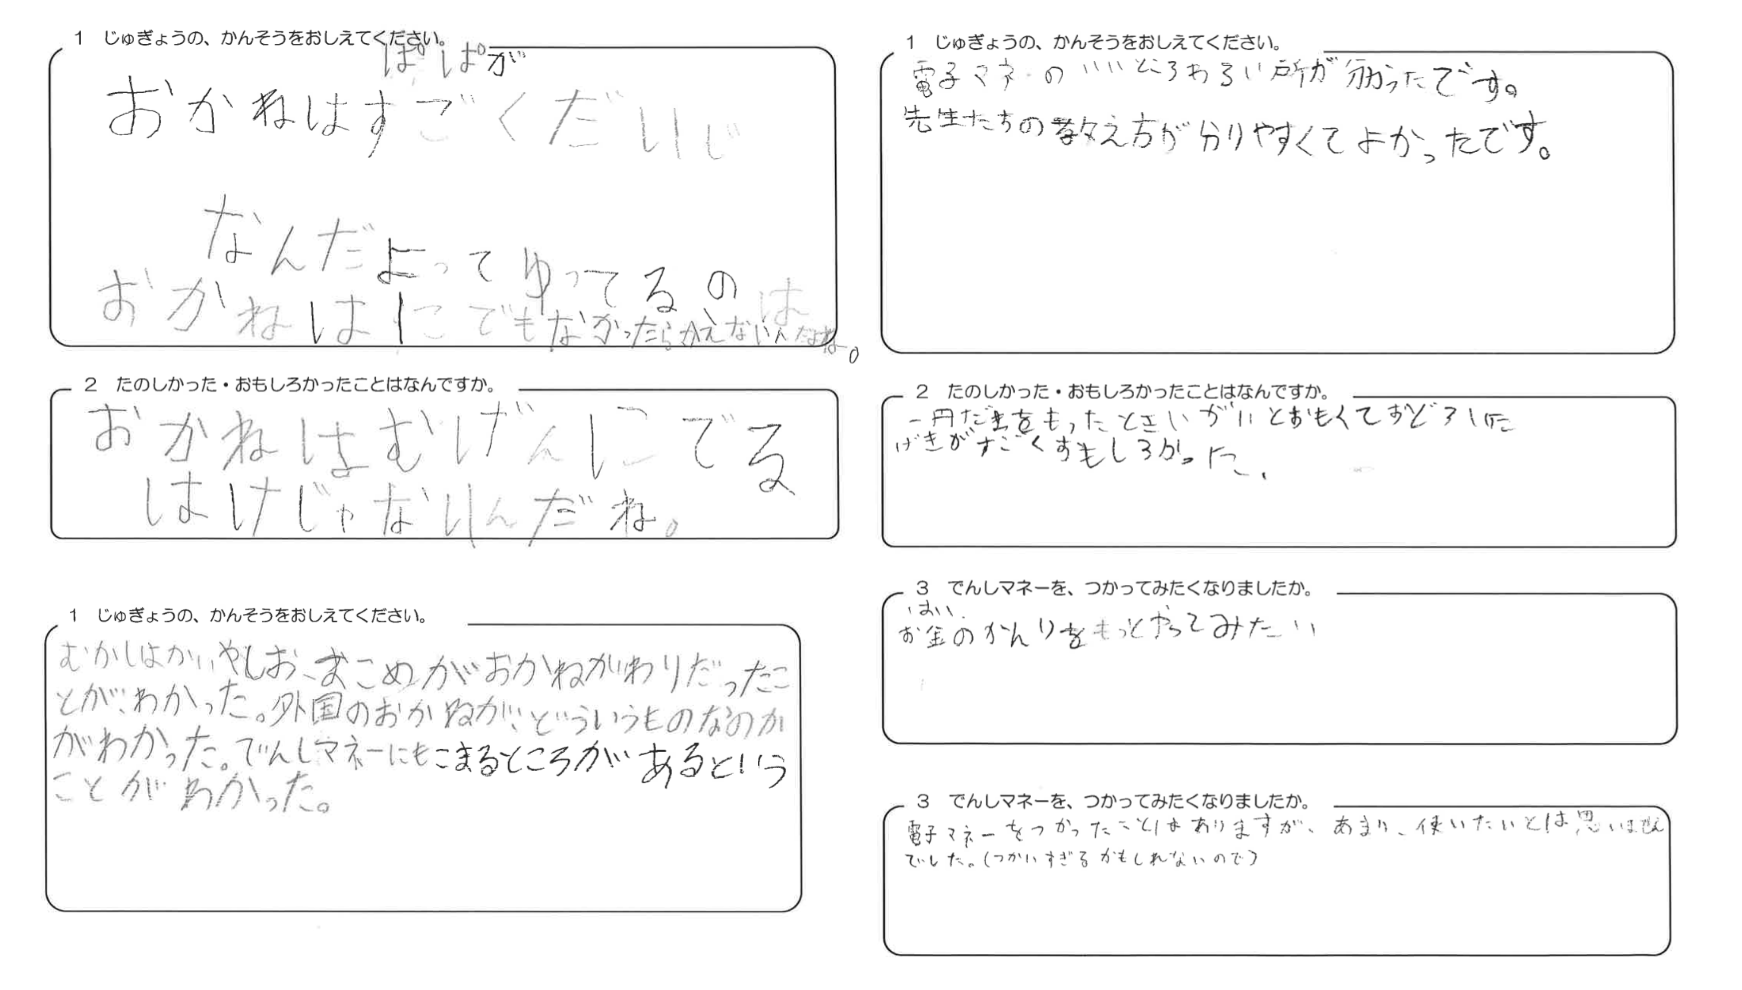 1 じゅぎょうの、かんそうをおしえてください。
ぱぱが
おかねはすごくだいじ
なんだよってゆってるのは
おかねはにこでもなかったらかえないんだよね。
2 たのしかった・おもしろかったことはなんですか。
おかねはむげんにでる
はけじゃないんだね。
1 じゅぎょうの、かんそうをおしえてください。
むかしはかいやしお、おこめがおかねがわりだったこ
とが、わかった。外国のおかねが、どういうものなのか
がわかった。でんしマネーにもこまるところがあるという
ことがわかった。
1 じゅぎょうの、かんそうをおしえてください。
電子マネーのいいところわるい所が分かったです。
先生たちの教え方が分りやすくてよかったです。
2 たのしかった・おもしろかったことはなんですか。
一円だまをもったときいがいとおもくておどろいた
げきがすごくおもしろかった、
3 でんしマネーを、つかってみたくなりましたか。
はい、
お金のかんりをもっとやってみたい
3 でんしマネーを、つかってみたくなりましたか。
電子マネーをつかったことはありますが、あまり、使いたいとは思いません
でした。(つかいすぎるかもしれないので)